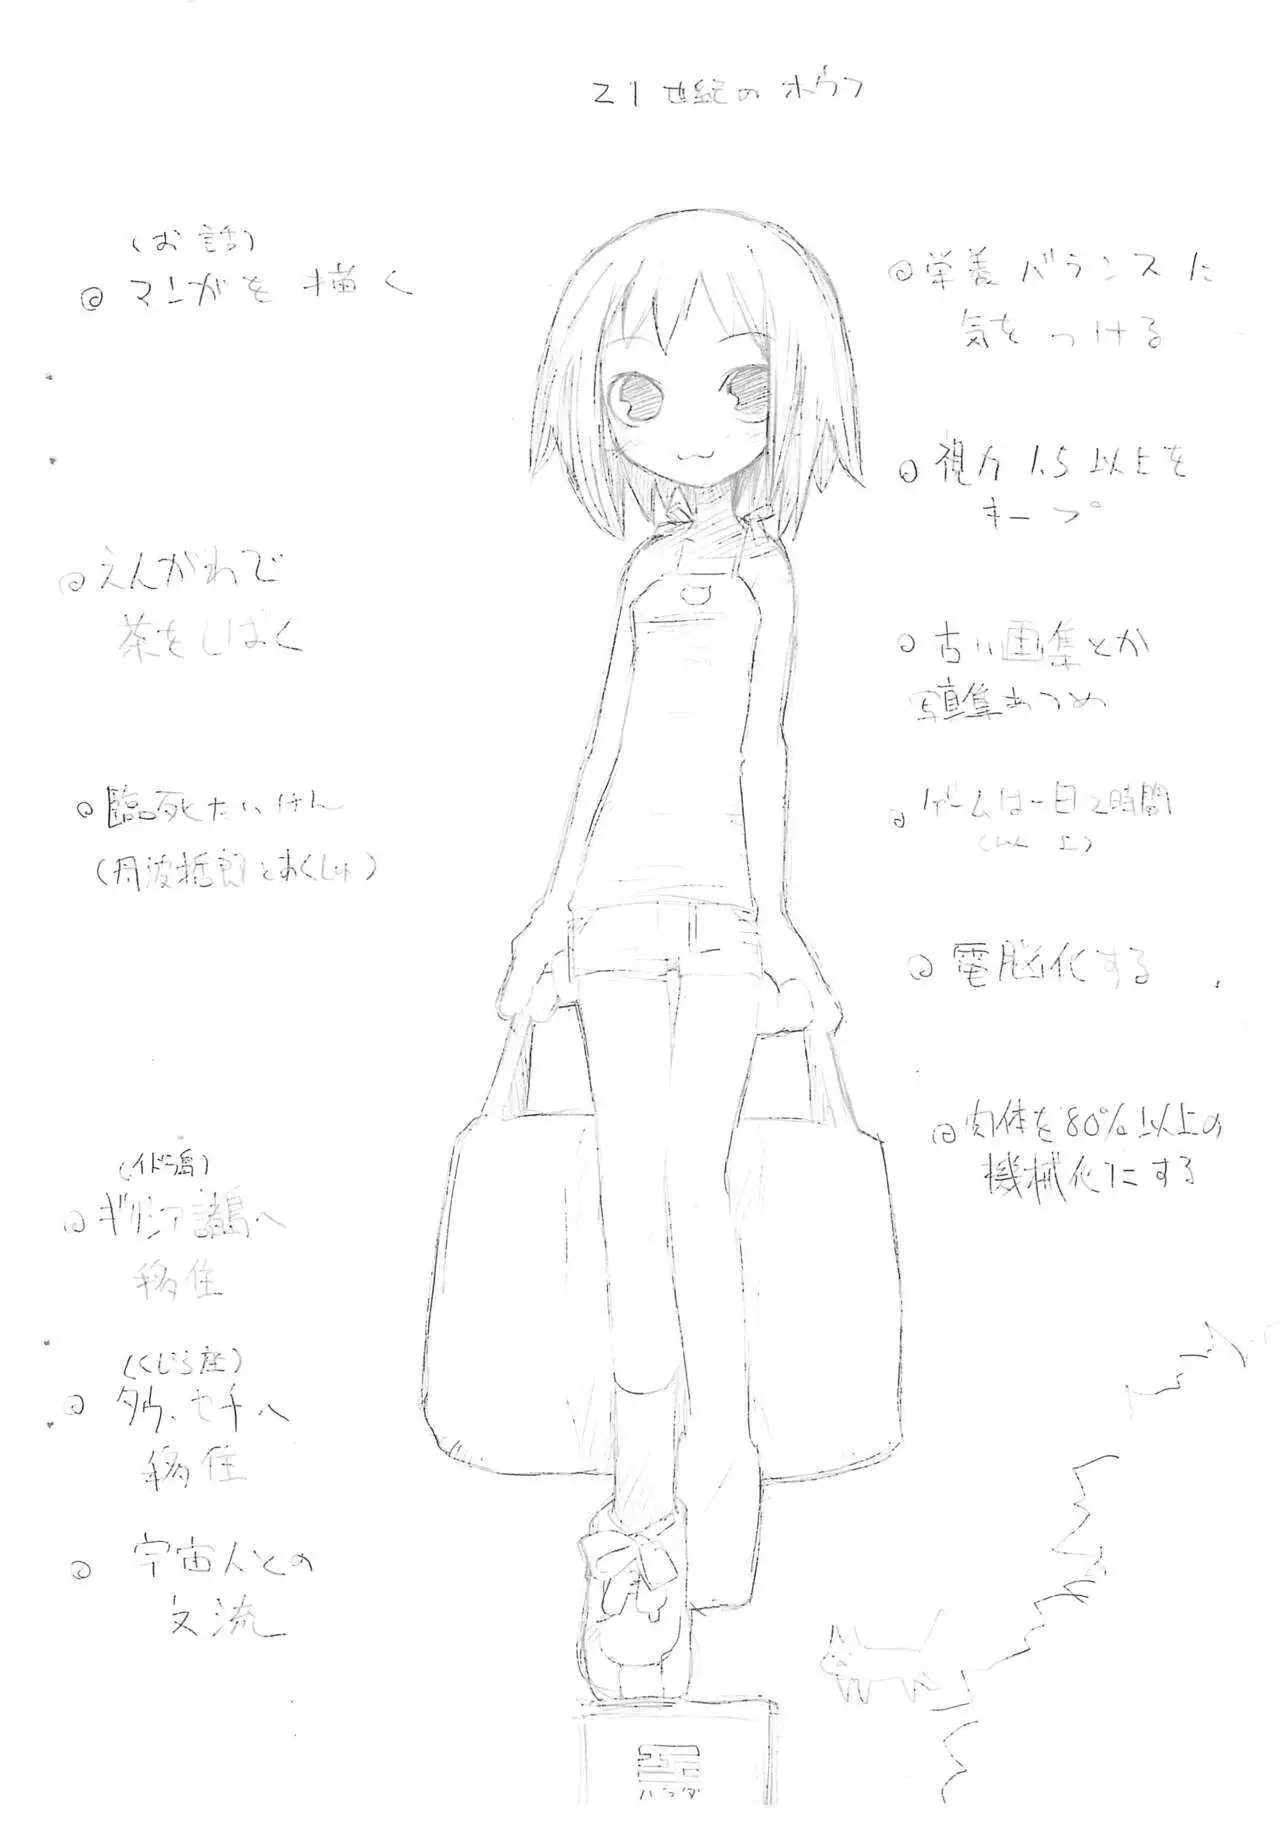 21世紀のホウフ
(お話)
◎マンガを描く
◎えんがわで
茶をしばく
◎臨死たいけん
(丹波哲郎とあくしゅ)
(イドラ島)
◎ギリシア諸島へ
移住
(くじら座)
◎タウ、セチへ
移住
◎宇宙人との
交流
◎栄養バランスに
気をつける
◎視力1.5以上を
キープ
◎古い画集とか
写真集あつめ
◎ゲームは一日2時間
(以上)
◎電脳化する
◎肉体を80%以上の
機械化にする
ハラダ